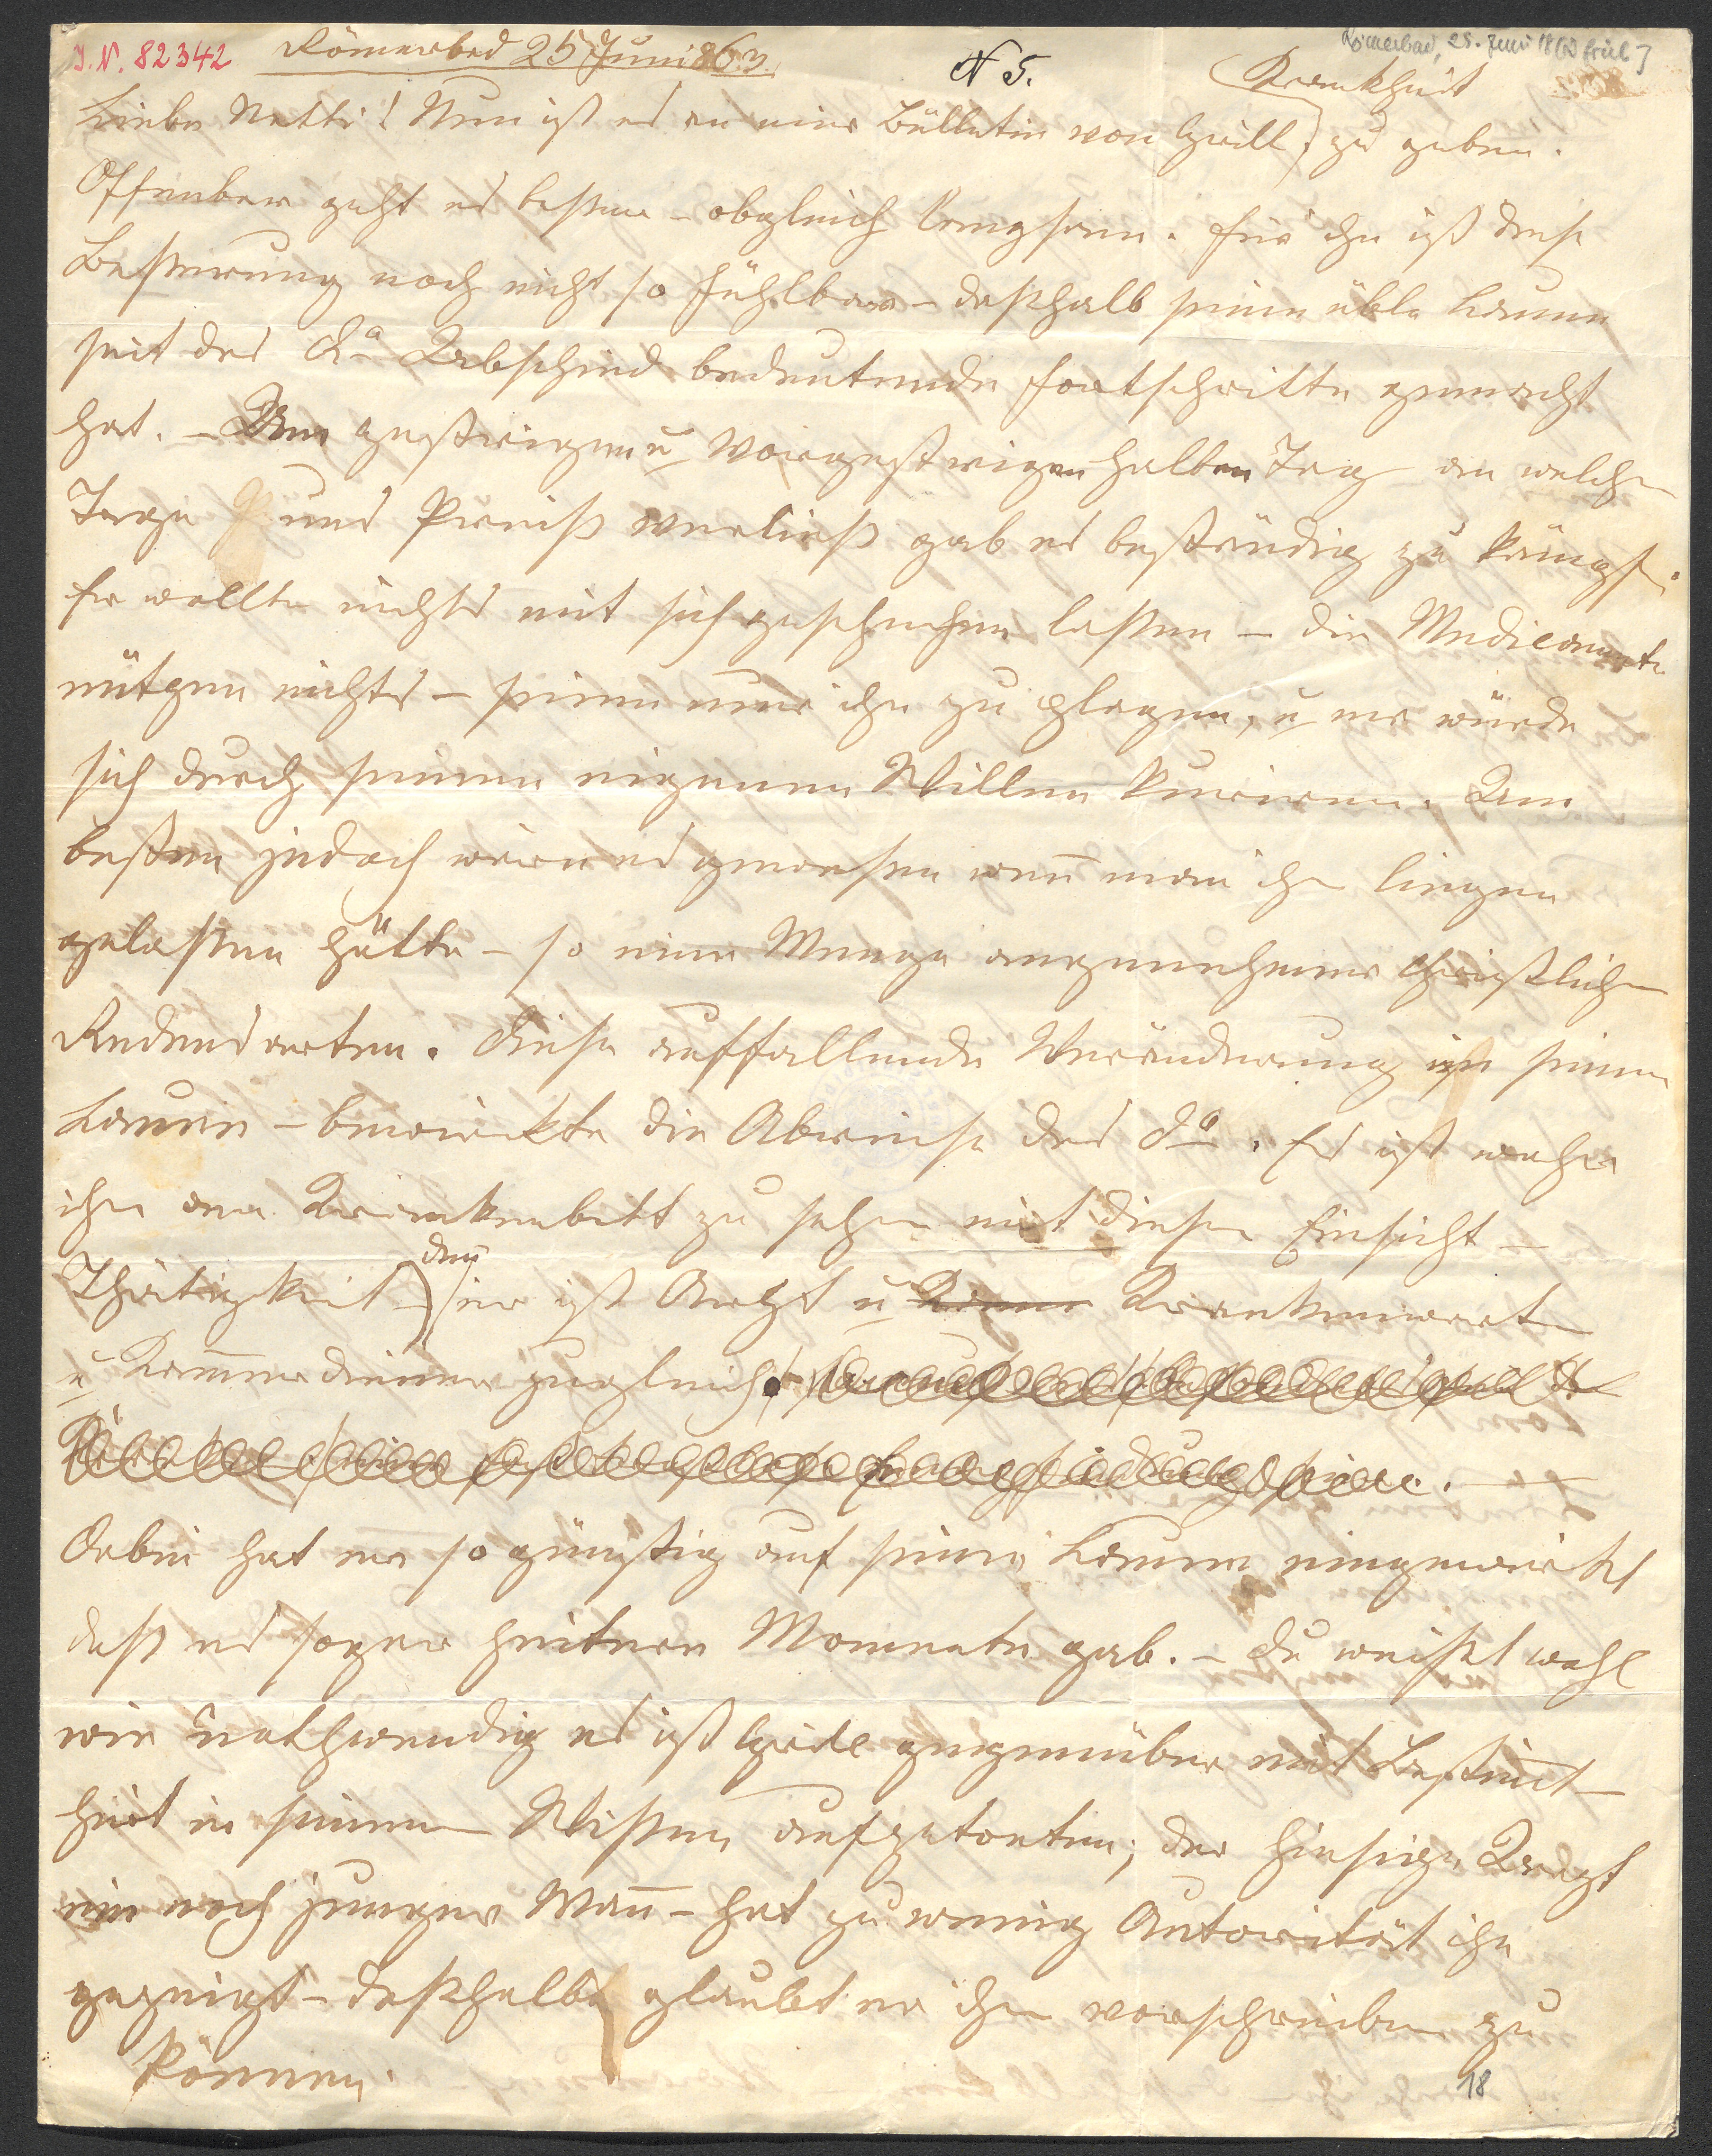 J. N. 82342 Römerbad 25 Juni 863. N 5. Römerbad, 25. Juni 18 [62 früh]
Krankheit
Liebe Netti! Nun ist es an eine Bülletin von Grill, zu geben.
Offenbar geht es besser – obgleich langsam. Für ihn ist diese
Besserung noch nicht so fühlbar – deßhalb seine üble Laune
seit des Abschied bedeutende Fortschritte gemacht
hat. – Den gestrigen u vorgestrigen halben Tag an welchen
Tage uns Preiß verließ gab es beständig zu kämpfen.
Er wollte nichts mit sich geschehen lassen – die Medicamente
nützen nichts – seien nur ihn zu plagen, u er würde
sich durch seinen eigenen Willen kuriren. Am
besten jedoch wäre es gewesen wenn man ihn liegen
gelassen hätte – so eine Menge angenehmer christlicher
Redensarten. Diese auffallende Veränderung in seiner
Laune – bewirkte die Abreise des . Es ist wahr
ihn am Krankenbett zu sehen mit dieser Einsicht –
Thätigkeit – denn er ist Arzt u Krankenwärter
u Kammerdiener zugleich.
Dabei hat er so günstig auf seine Laune eingewirkt
daß es sogar heitere Momente gab. – Du weißt wohl
wie nothwendig es ist Grill gegenüber mit Bestimt-
heit in seinem Wissen aufzutreten; der hiesige Arzt
ein noch junger Mann – hat zu wenig Autorität ihm
gezeigt – deßhalb glaubt er ihm vorschreiben zu
können.
18